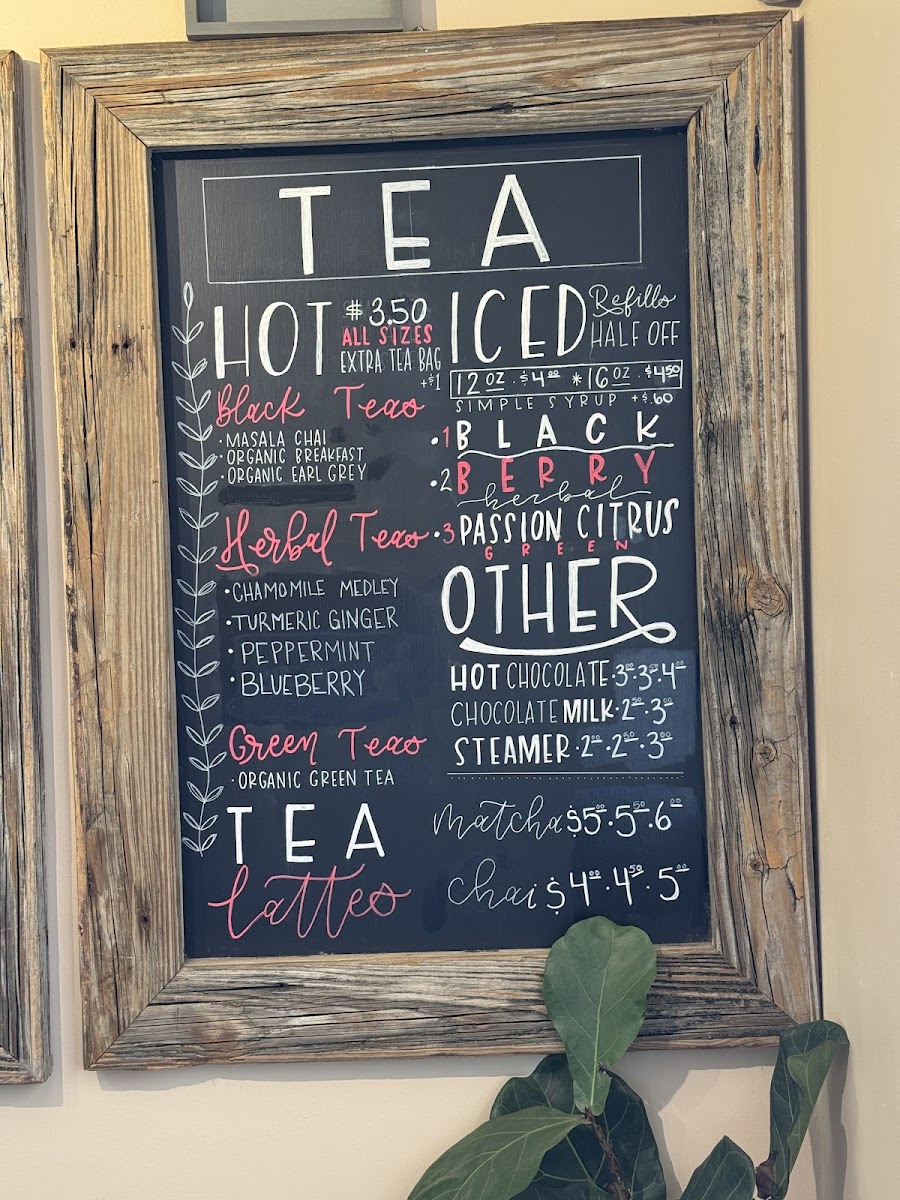 TEA
HOT
$3.50
ALL SIZES
EXTRA TEA BAG
+$1
Black Teas
· MASALA CHAI
· ORGANIC BREAKFAST
· ORGANIC EARL GREY
Herbal Teas
· CHAMOMILE MEDLEY
· TURMERIC GINGER
· PEPPERMINT
· BLUEBERRY
Green Teas
· ORGANIC GREEN TEA
ICED
Refills
HALF OFF
12 OZ · $4.00 * 16 OZ · $4.50
SIMPLE SYRUP +$.60
· 1 BLACK
· 2 BERRY
herbal
· 3 PASSION CITRUS
GREEN
OTHER
HOT CHOCOLATE · 3.00 · 3.50 · 4.00
CHOCOLATE MILK · 2.50 · 3.00
STEAMER · 2.00 · 2.50 · 3.00
TEA
lattes
matcha $5.00 · 5.50 · 6.00
chai $4.00 · 4.50 · 5.00